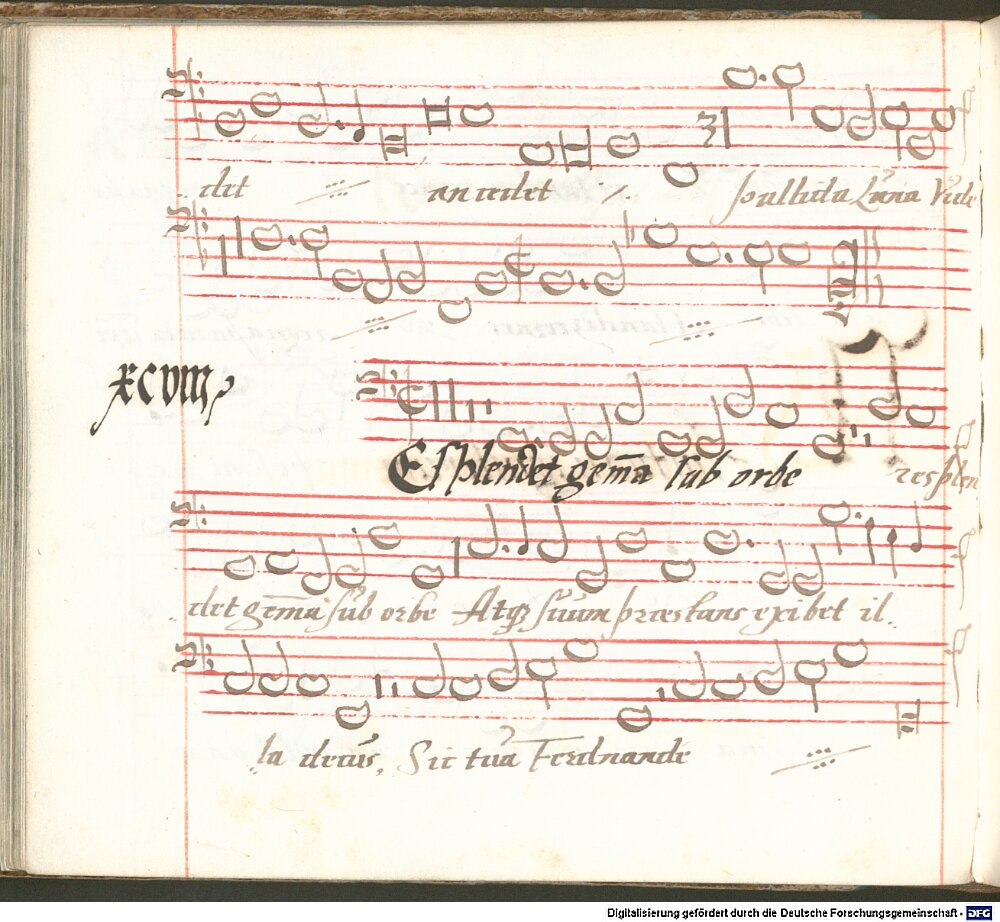 det ·//· an cedet ·//· pallida Luna Vide
·//· ·//·
XCVIII
Esplendet gem̄a sub orbe resplen
det gem̄a sub orbe Atqꝫ suum præstans exibet il.
la decus, Sic tua Ferdnande ·//·
Digitalisierung gefördert durch die Deutsche Forschungsgemeinschaft - DFG